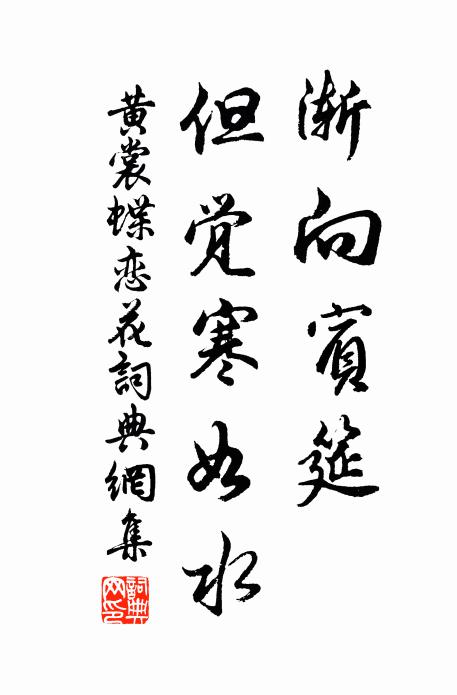 渐向宾筵
但觉寒如水
黄裳蝶恋花詞典網集
詞典网印